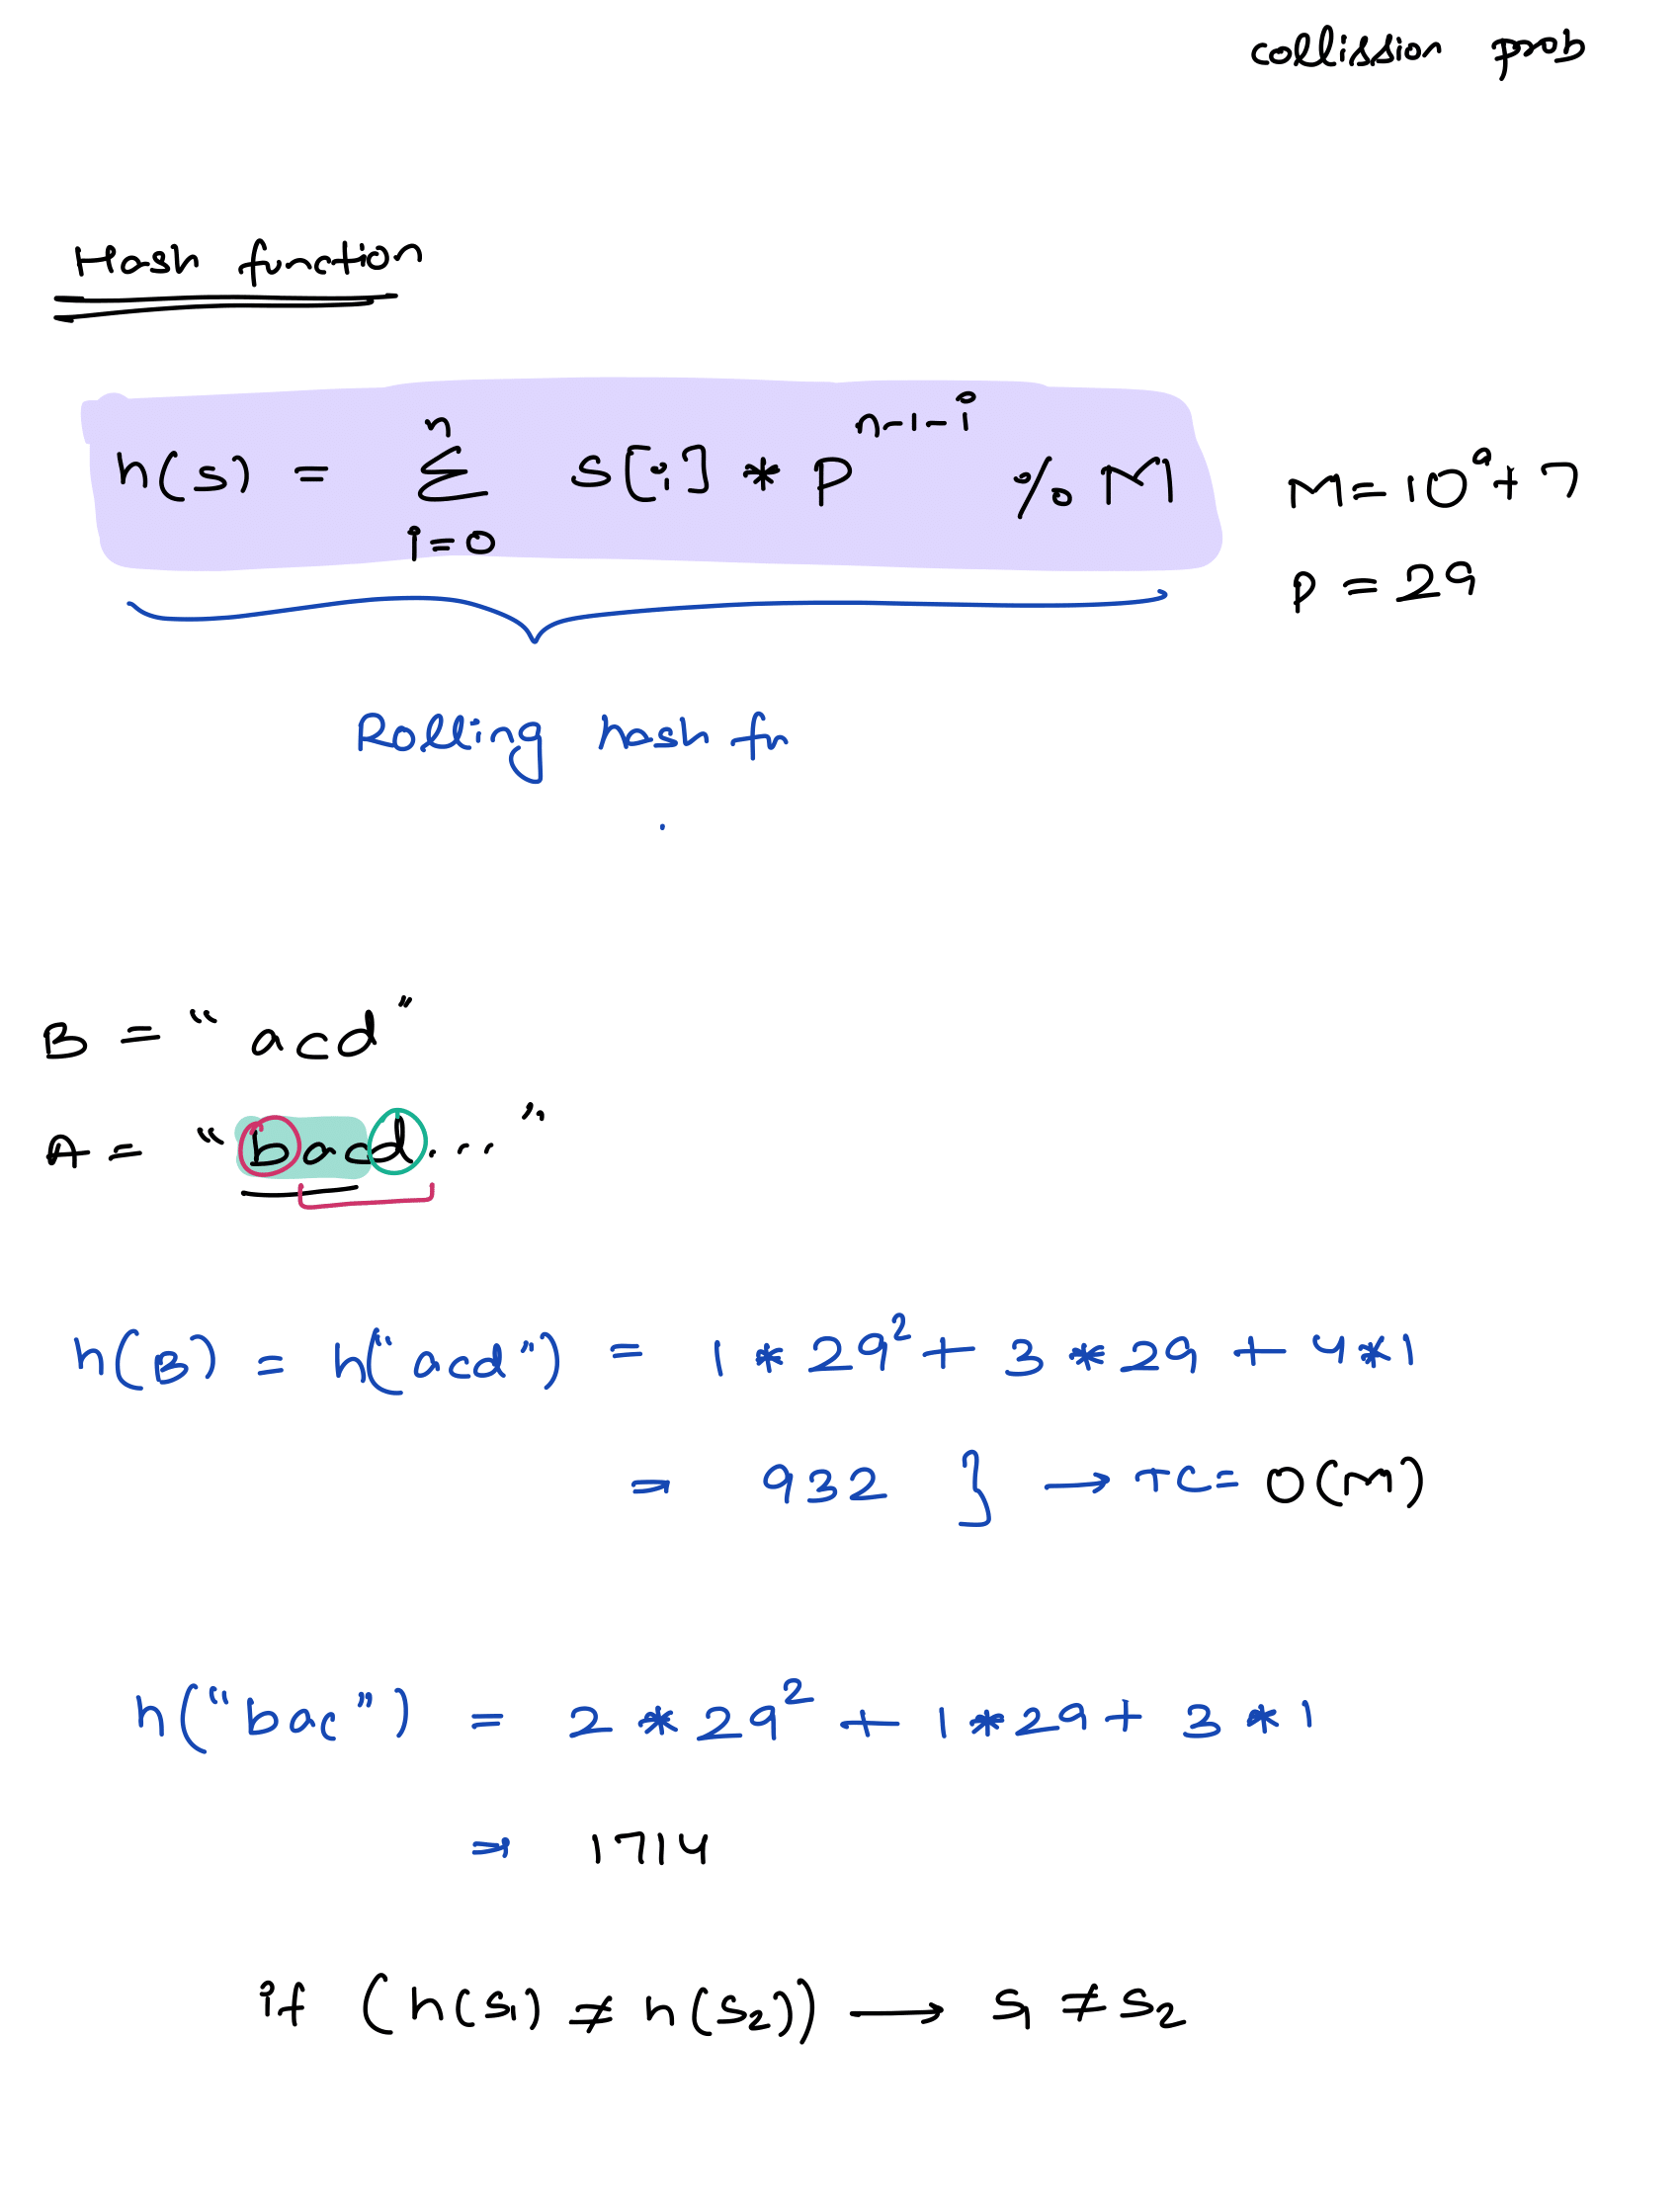 collission prob
Hash function
h(s) = n Σ i=0 s[i] * p^(n-1-i) % M
M = 10^9 + 7
p = 29
Rolling hash fn
B = “ acd ”
A = “ bacd... ”
h(B) = h(“acd”) = 1 * 29² + 3 * 29 + 4 * 1
= 932 } → TC = O(M)
h(“bac”) = 2 * 29² + 1 * 29 + 3 * 1
⇒ 1714
if (h(s1) ≠ h(s2)) → s1 ≠ s2